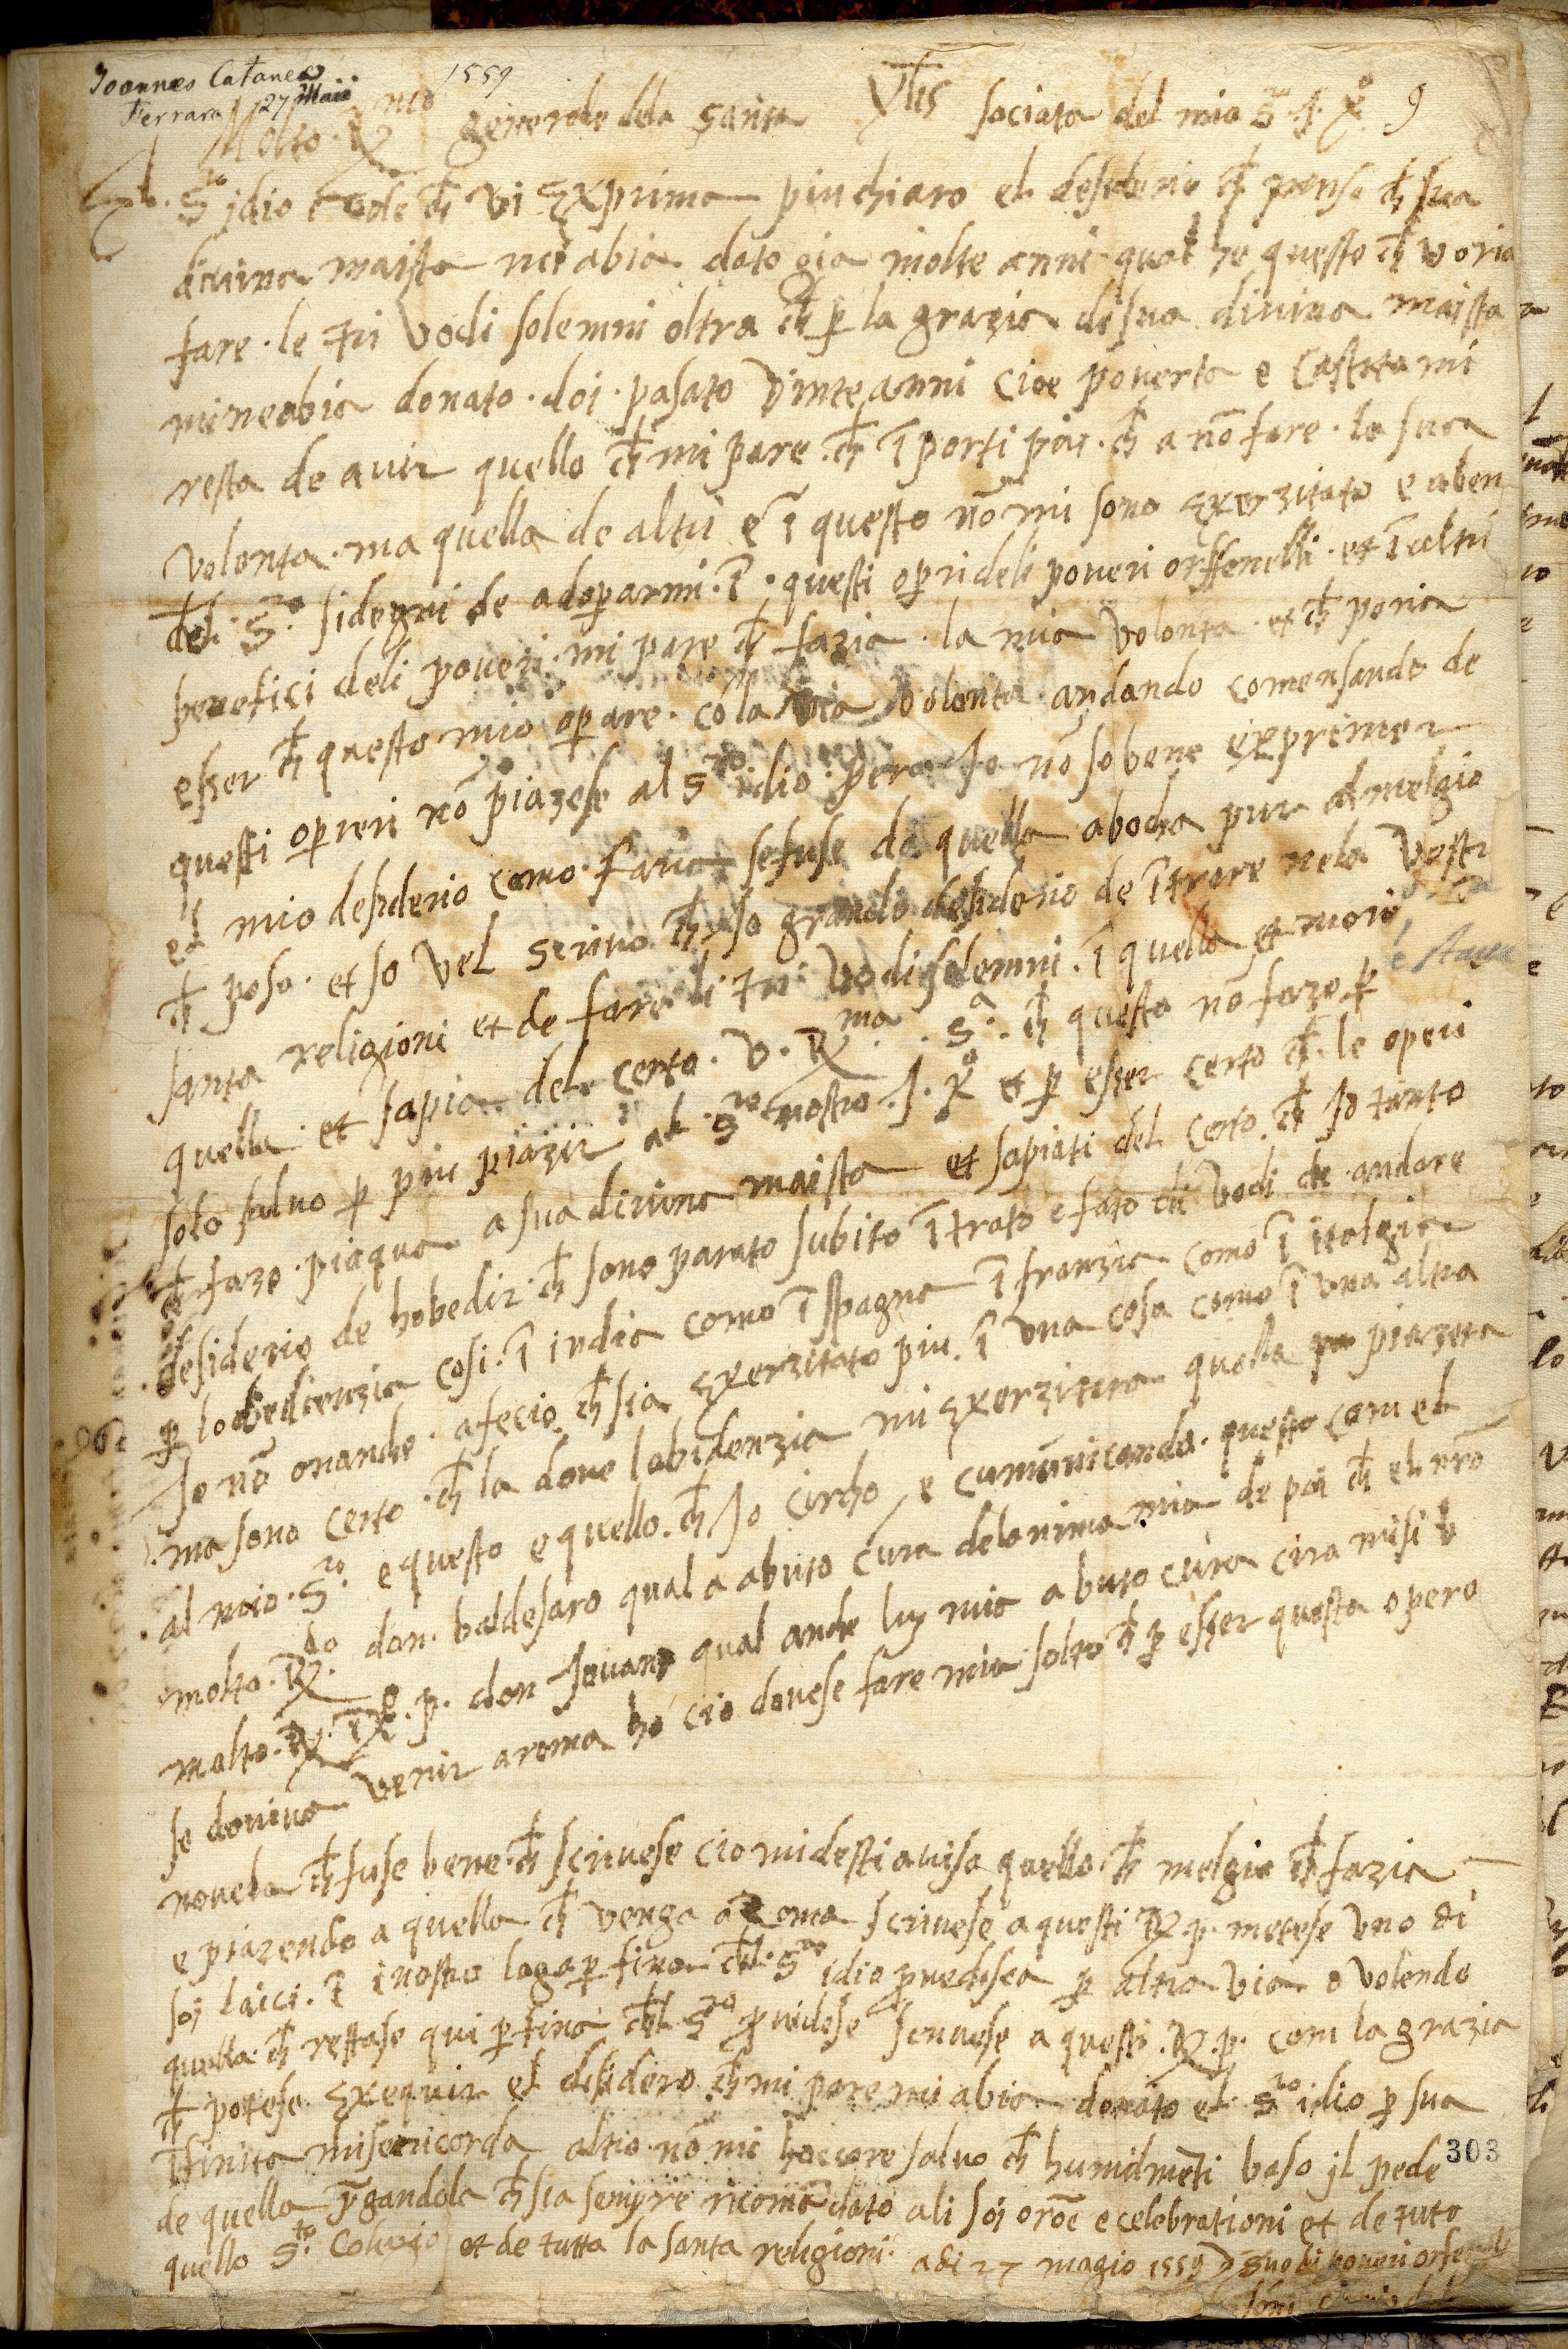 Joannes Cataneo
Ferrara 27 Maii
1559
Molto Rx.do generale dela santa Yhs sociata del mio S. J. X.o 9
S.ro idio code ch̄ vi exprima piu chiaro el desiderio ch̄ penso ch̄ sua
divina maista mi abia dato gia molte anni qual he questo ch̄ voria
fare le tri vodi solemni oltra ch̄ p̄ la grazia di sua divina maista
mi ne abia donato doi pasato vinte anni cioe poverta e castita mi
resta de avir quello ch̄ mi pare ch̄ ī porti piu ch̄ a nō fare la sua
volonta ma quella de altri e ī questo nō mi sono exerzitato e aben
del S.ro si degni de adoparmi ī questi opri deli poveri orffenelli et ī altri
benefici deli poveri mi pare ch̄ fazia la mia volonta et ch̄ poria
esser ch̄ questo mio opare cō la mia volonta andando comensando de
questi opreri nō piazese al S.ro idio pero Jo nō so bene exprimer
el mio desiderio como faria se fuse da quella a bocha pur al melgio
ch̄ poso et so vel scrivo ch̄ ho grando desiderio de ītrare nela vostr
santa religioni et de fare li tri vodi solemni ī quella et morir
quella et sapia del certo v. Rx.ma S.a ch̄ questo nō fazo p̄
solo salvo p̄ piu piazir al S.ro nostro J. X.o et p̄ esser certo ch̄ le operi
ch̄ fazo piaqua a sua divina maista et sapiati del certo ch̄ Jo tanto
desiderio de hobedir ch̄ sono parato subito ītrato e fato li vodi de andare
p̄ lobedienzia cosi ī india como ī spagna ī franzia como ī italgia
Jo nō o nanche afecio ch̄ sia exerzitato piu ī una cosa como ī una altra
ma sono certo ch̄ la dove lobidenzia mi exerzitara quella piazera
al mio S.ro e questo e quello ch̄ Jo circho e cumunicando questo com el
molto Rx.do don baldesaro qual a abuto cura del anima mia de poi ch̄ el nrō
malto Rx. ī X.o p. don Jovane qual anche luy mio abuto cura cira misi v
se doviva venir a roma ho cio dovese fare mia solto ch̄ p̄ esser questa opero
novela ch̄ fuse bene ch̄ scrivese cio mi desti aviso quello ch̄ melgio ch̄ fazia
e piazendo a quella ch̄ venga a Roma scrivese a questi Rx. p. metese uno di
soi laici ī i nostro loga p̄ fina ch̄ l S.ro idio provedesca p̄ altra via o volendo
quella ch̄ restase qui p̄ fina ch̄ l S.ro providese scrivese a questi Rx. p. com la grazia
ch̄ potese exequir el desidero ch̄ mi pare mi abia donato el S.ro idio p̄ sua
īfinita misericorda altro nō mi hoccore salvo ch̄ humilmēti baso il pede
303
de quella p̄gandola ch̄ sia sempre ricomādato ali soi orōe e celebrationi et de tuto
quello S.to Colegio et de tutta la santa religioni adi 27 magio 1559 suo di poveri orfenelli